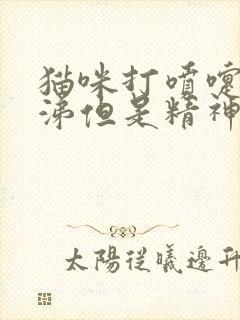 猫咪打喷嚏
涕但是精神
太陽從曦邊升